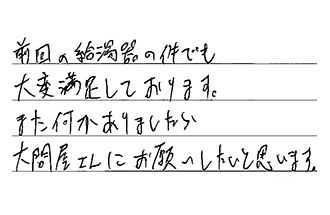 前回の給湯器の件でも
大変満足しております。
また何かありましたら
大問屋さんにお願いしたいと思います。